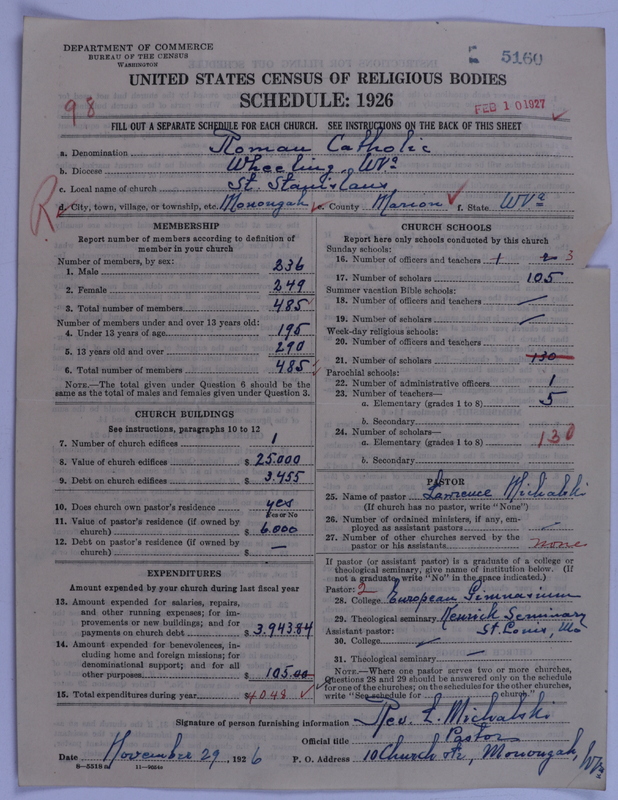 DEPARTMENT OF COMMERCE
BUREAU OF THE CENSUS
WASHINGTON
5160
UNITED STATES CENSUS OF RELIGIOUS BODIES
SCHEDULE: 1926
98
FEB 10 1927
FILL OUT A SEPARATE SCHEDULE FOR EACH CHURCH. SEE INSTRUCTIONS ON THE BACK OF THIS SHEET
a. Denomination Roman Catholic
b. Diocese Wheeling, W Va
c. Local name of church St. Stanislaus
R
d. City, town, village, or township, etc. Monongah e. County Marion f. State W Va
MEMBERSHIP
Report number of members according to definition of
member in your church
Number of members, by sex:
1. Male 236
2. Female 249
3. Total number of members 485
Number of members under and over 13 years old:
4. Under 13 years of age 195
5. 13 years old and over 290
6. Total number of members 485
NOTE.—The total given under Question 6 should be the
same as the total of males and females given under Question 3.
CHURCH BUILDINGS
See instructions, paragraphs 10 to 12
7. Number of church edifices 1
8. Value of church edifices $ 25.000
9. Debt on church edifices $ 3.455
10. Does church own pastor's residence? yes
Yes or No
11. Value of pastor's residence (if owned by
church) $ 6.000
12. Debt on pastor's residence (if owned by
church) $ —
EXPENDITURES
Amount expended by your church during last fiscal year
13. Amount expended for salaries, repairs,
and other running expenses; for im-
provements or new buildings; and for
payments on church debt $ 3.943.84
14. Amount expended for benevolences, in-
cluding home and foreign missions; for
denominational support; and for all
other purposes $ 105.00
15. Total expenditures during year $ 4048
CHURCH SCHOOLS
Report here only schools conducted by this church
Sunday schools:
16. Number of officers and teachers 1 2 3
17. Number of scholars 105
Summer vacation Bible schools:
18. Number of officers and teachers —
19. Number of scholars —
Week-day religious schools:
20. Number of officers and teachers
21. Number of scholars 130
Parochial schools:
22. Number of administrative officers 1
23. Number of teachers—
a. Elementary (grades 1 to 8) 5
b. Secondary
24. Number of scholars—
a. Elementary (grades 1 to 8) 130
b. Secondary
PASTOR
25. Name of pastor Lawrence Michalski
(If church has no pastor, write "None")
26. Number of ordained ministers, if any, em-
ployed as assistant pastors —
27. Number of other churches served by the
pastor or his assistants none
If pastor (or assistant pastor) is a graduate of a college or
theological seminary, give name of institution below. (If
not a graduate, write "No" in the space indicated.)
Pastor: 2
28. College European Gimnasium
29. Theological seminary Kenrick Seminary
Assistant pastor: St. Louis, Mo
30. College —
31. Theological seminary —
NOTE.—Where one pastor serves two or more churches,
Questions 28 and 29 should be answered only on the schedule
for one of the churches; on the schedules for the other churches,
write "See schedule for church."
Signature of person furnishing information Rev. L. Michalski
Official title Pastor
Date November 29, 1926 P. O. Address 10 Church Str., Monongah, W Va
8—5518a 11—9664